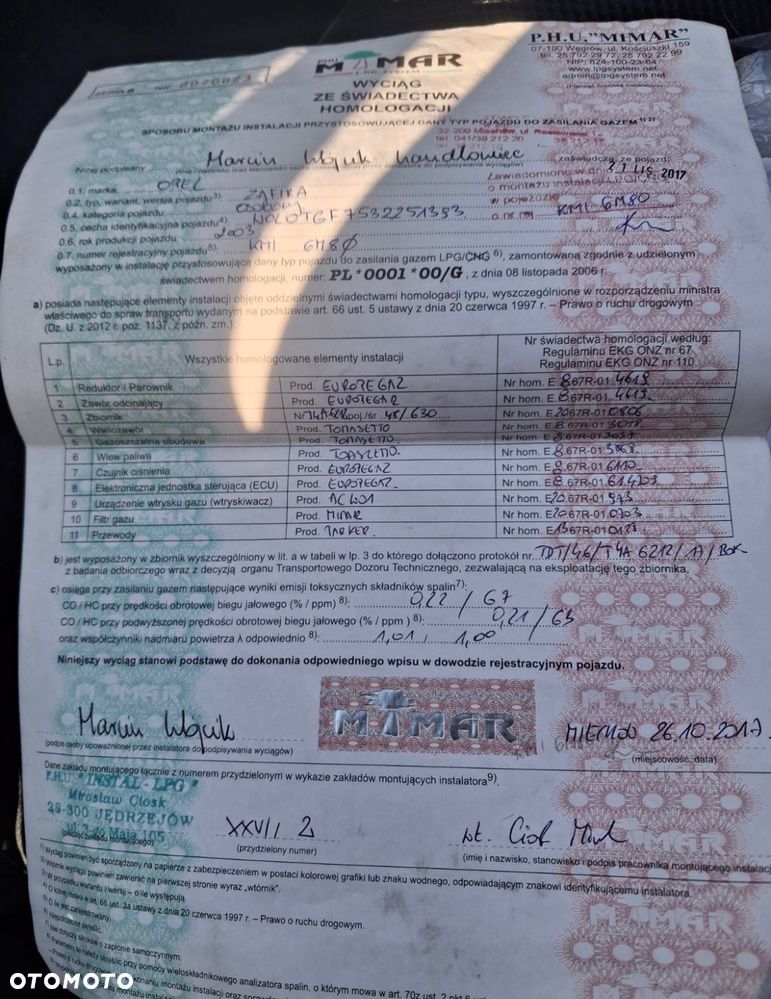 P.H.U."MIMAR"
07-100 Węgrów, ul. Kościuszki 159
tel. 25 792 29 72, 25 792 22 99
NIP: 824-100-23-64
www.lpgsystem.net
admin@lpgsystem.net
PHU MIMAR
LPG SYSTEM
WYCIĄG
ZE ŚWIADECTWA
HOMOLOGACJI
SPOSOBU MONTAŻU INSTALACJI PRZYSTOSOWUJĄCEJ DANY TYP POJAZDU DO ZASILANIA GAZEM 1) 2)
Niżej podpisany Marcin Wójcik handlowiec zaświadcza, że pojazd:
Zawiadomiono w dn. LIS. 2017
o montażu instalacji
w pojeździe
o nr rej. KMI 6M80
0.1. marka: OPEL
0.2. typ, wariant, wersja pojazdu3): ZAFIRA
0.4. kategoria pojazdu: osobowy
0.5. cecha identyfikacyjna pojazdu4): W0L0TGF7532251383
0.6. rok produkcji pojazdu: 2003
0.7. numer rejestracyjny pojazdu5): KMI 6M80
wyposażony w instalację przystosowującą dany typ pojazdu do zasilania gazem LPG/CNG 6), zamontowaną zgodnie z udzielonym
świadectwem homologacji, numer: PL*0001*00/G, z dnia 08 listopada 2006 r.
a) posiada następujące elementy instalacji objęte oddzielnymi świadectwami homologacji typu, wyszczególnione w rozporządzeniu ministra
właściwego do spraw transportu wydanym na podstawie art. 66 ust. 5 ustawy z dnia 20 czerwca 1997 r. – Prawo o ruchu drogowym
(Dz. U. z 2012 r. poz. 1137, z późn. zm.):
L.p. Wszystkie homologowane elementy instalacji Nr świadectwa homologacji według:
Regulaminu EKG ONZ nr 67
Regulaminu EKG ONZ nr 110
1 Reduktor / Parownik Prod. EUROPEGAZ Nr hom. E 8 67R-01 4613
2 Zawór odcinający Prod. EUROPEGAZ Nr hom. E 8 67R-01 4613
3 Zbiornik poj./śr. 48/630 Nr hom. E 20 67R-01 0806
4 Wielozawór Prod. TOMASETTO Nr hom. E 8 67R-01 3018
5 Gazoszczelna obudowa Prod. TOMASETTO Nr hom. E 8 67R-01 3037
6 Wlew paliwa Prod. TOMASETTO Nr hom. E 8 67R-01
7 Czujnik ciśnienia Prod. EUROPEGAZ Nr hom. E 8 67R-01 6110
8 Elektroniczna jednostka sterująca (ECU) Prod. EUROPEGAZ Nr hom. E 8 67R-01
9 Urządzenie wtrysku gazu (wtryskiwacz) Prod. AC W01 Nr hom. E 20 67R-01 573
10 Filtr gazu Prod. MIMAR Nr hom. E 20 67R-01 0703
11 Przewody Prod. PARKER Nr hom. E 13 67R-01 0188
b) jest wyposażony w zbiornik wyszczególniony w lit. a w tabeli w lp. 3 do którego dołączono protokół nr
z badania odbiorczego wraz z decyzją organu Transportowego Dozoru Technicznego, zezwalającą na eksploatację tego zbiornika,
c) osiąga przy zasilaniu gazem następujące wyniki emisji toksycznych składników spalin7):
CO / HC przy prędkości obrotowej biegu jałowego (% / ppm) 8): 0,22 / 67
CO / HC przy podwyższonej prędkości obrotowej biegu jałowego (% / ppm ) 8): 0,21 / 63
oraz współczynniki nadmiaru powietrza λ odpowiednio 8): 1,01 , 1,00
Niniejszy wyciąg stanowi podstawę do dokonania odpowiedniego wpisu w dowodzie rejestracyjnym pojazdu.
Marcin Wójcik
MIMAR
MIECHÓW 26.10.2017
(podpis osoby upoważnionej przez instalatora do podpisywania wyciągów)
(miejscowość, data)
Dane zakładu montującego łącznie z numerem przydzielonym w wykazie zakładów montujących instalatora9).
P.H.U. "INSTAL-LPG"
Mirosław Ciosk
28-300 JĘDRZEJÓW
ul. 3-go Maja 105
(pieczęć zakładu montującego)
XXVI/ 2
(przydzielony numer)
(imię i nazwisko, stanowisko i podpis pracownika montującego instalację)
1) Wyciąg powinien być sporządzony na papierze z zabezpieczeniem w postaci kolorowej grafiki lub znaku wodnego, odpowiadającym znakowi identyfikującemu instalatora.
2) Wtórnik wyciągu powinien zawierać na pierwszej stronie wyraz „wtórnik”.
3) W przypadku wariantu i wersji – o ile występują.
4) O której mowa w art. 66 ust. 3a ustawy z dnia 20 czerwca 1997 r. – Prawo o ruchu drogowym.
5) O ile jest zarejestrowany.
6) Niepotrzebne skreślić.
7) Nie dotyczy silników o zapłonie samoczynnym.
8) Parametry te należy określić przy pomocy wieloskładnikowego analizatora spalin, o którym mowa w art. 70z ust. 2 pkt 6
OTOMOTO